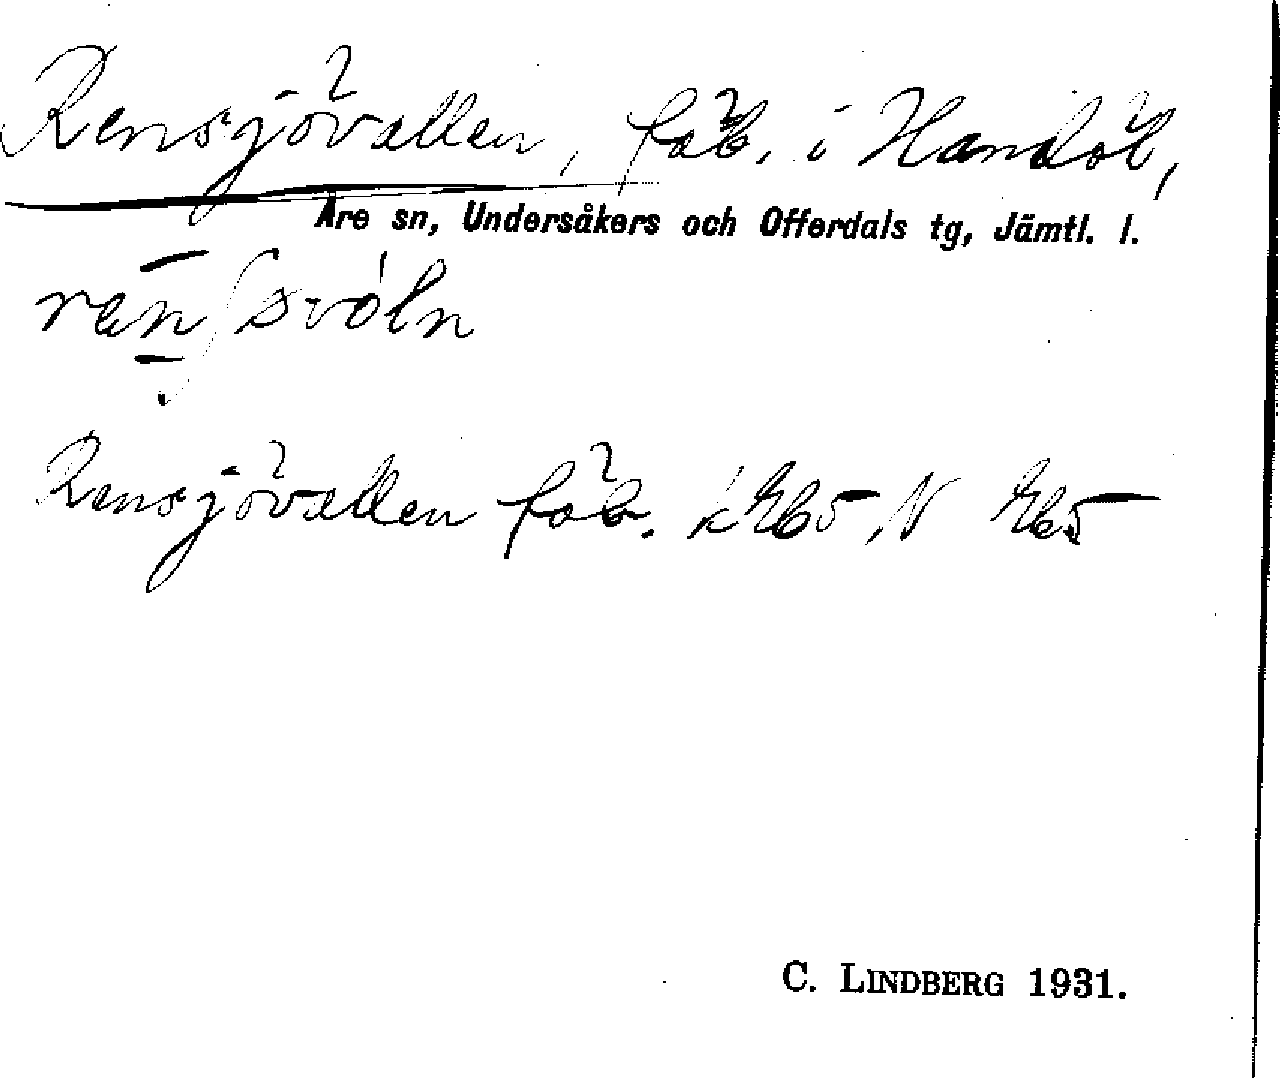 Rensjövallen, fäb. i Handöl,
Åre sn, Undersåkers och Offerdals tg, Jämtl. l.
Rensjövallen fäb.
C. LINDBERG 1931.